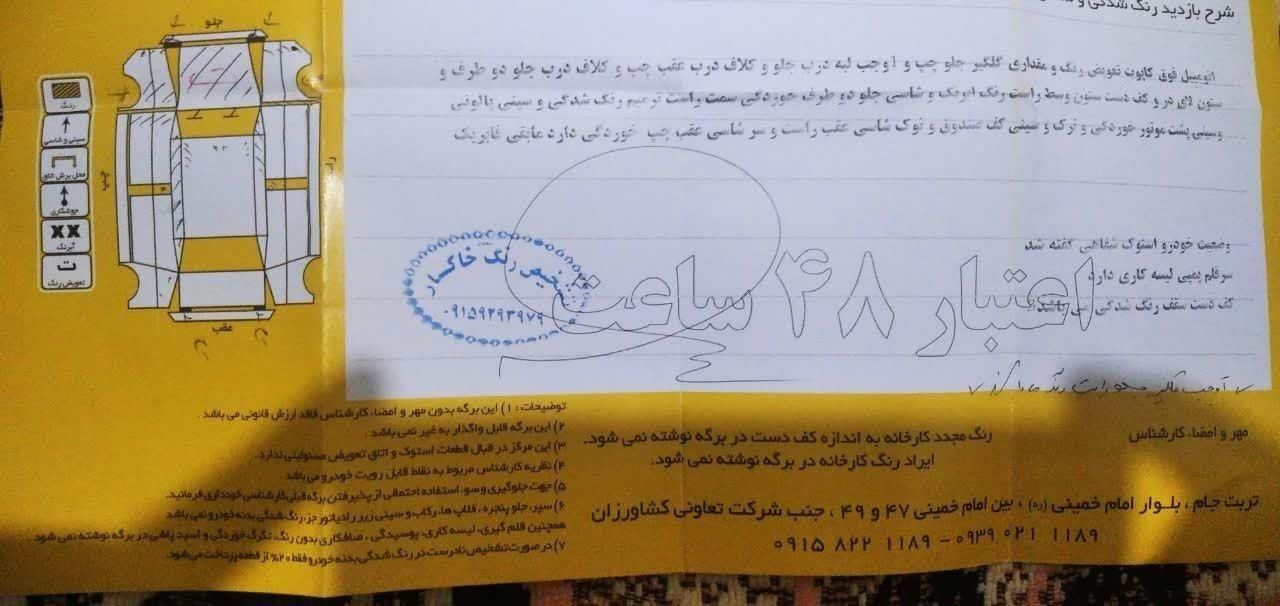 شرح بازدید رنگ شدگی و
اتومبیل فوق کاپوت تعویض رنگ و مقداری گلگیر جلو چپ و 1وجب لبه درب جلو و کلاف درب عقب چپ و کلاف درب جلو دو طرف و
ستون لای در و کف دست ستون وسط راست رنگ ابرنگ و شاسی جلو دو طرف خوردگی سمت راست ترمیم رنگ شدگی و سینی پالونی
وسینی پشت موتور خوردگی و ترک و سینی کف صندوق و نوک شاسی عقب راست و سر شاسی عقب چپ خوردگی دارد مابقی فابریک
وضعیت خودرو استوک شفاهی گفته شد
سرقلم پمپی لیسه کاری دارد
کف دست سقف رنگ شدگی می باشد
اعتبار ۴۸ ساعت
تشخیص رنگ خاکسار
۰۹۱۵۹۲۹۳۹۷۹
جلو
عقب
چپ
راست
رنگ
سینی و شاسی
محل برش اتاق
جوشکاری
XX
آبرنگ
ت
تعویض رنگ
مهر و امضاء کارشناس
رنگ مجدد کارخانه به اندازه کف دست در برگه نوشته نمی شود.
ایراد رنگ کارخانه در برگه نوشته نمی شود.
توضیحات : ۱) این برگه بدون مهر و امضاء کارشناس فاقد ارزش قانونی می باشد .
۲) این برگه قابل واگذار به غیر نمی باشد .
۳) این مرکز در قبال قطعات استوک و اتاق تعویض مسئولیتی ندارد.
۴) نظریه کارشناس مربوط به نقاط قابل رویت خودرو می باشد
۵) جهت جلوگیری و سوء استفاده احتمالی از پذیرفتن برگه قبلی کارشناسی خودداری فرمائید.
۶) سپر، جلو پنجره، فلاپ ها، رکاب و سینی زیر رادیاتور جزء رنگ شدگی بدنه خودرو نمی باشد
همچنین قلم گیری، لیسه کاری، پوسیدگی ، صافکاری بدون رنگ، تگرگ خوردگی و اسید پاشی در برگه نوشته نمی شود
۷) در صورت تشخیص نادرست در رنگ شدگی بدنه خودرو فقط ۲۰% از قطعه پرداخت می شود.
تربت جام ، بلوار امام خمینی (ره) ، بین امام خمینی ۴۷ و ۴۹ ، جنب شرکت تعاونی کشاورزان
۰۹۱۵ ۸۲۲ ۱۱۸۹ - ۰۹۳۹ ۰۲۱ ۱۱۸۹